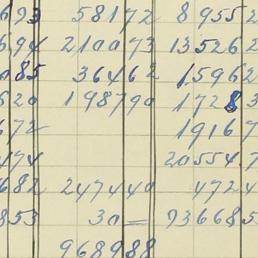 693 58172 89552
694 210073 135262
085 36462 15962
520 198790 17283
672 19167
474 205547
682 247440 4724
853 30= 936685
968988